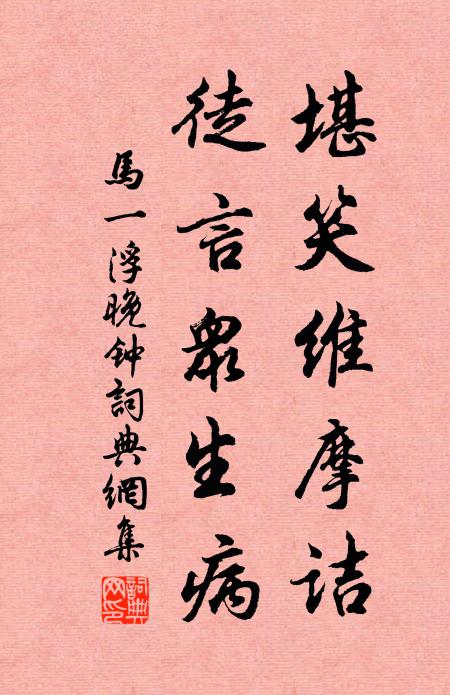 堪笑維摩詰
徒言眾生病
馬一浮晚钟詞典網集
詞典
网印